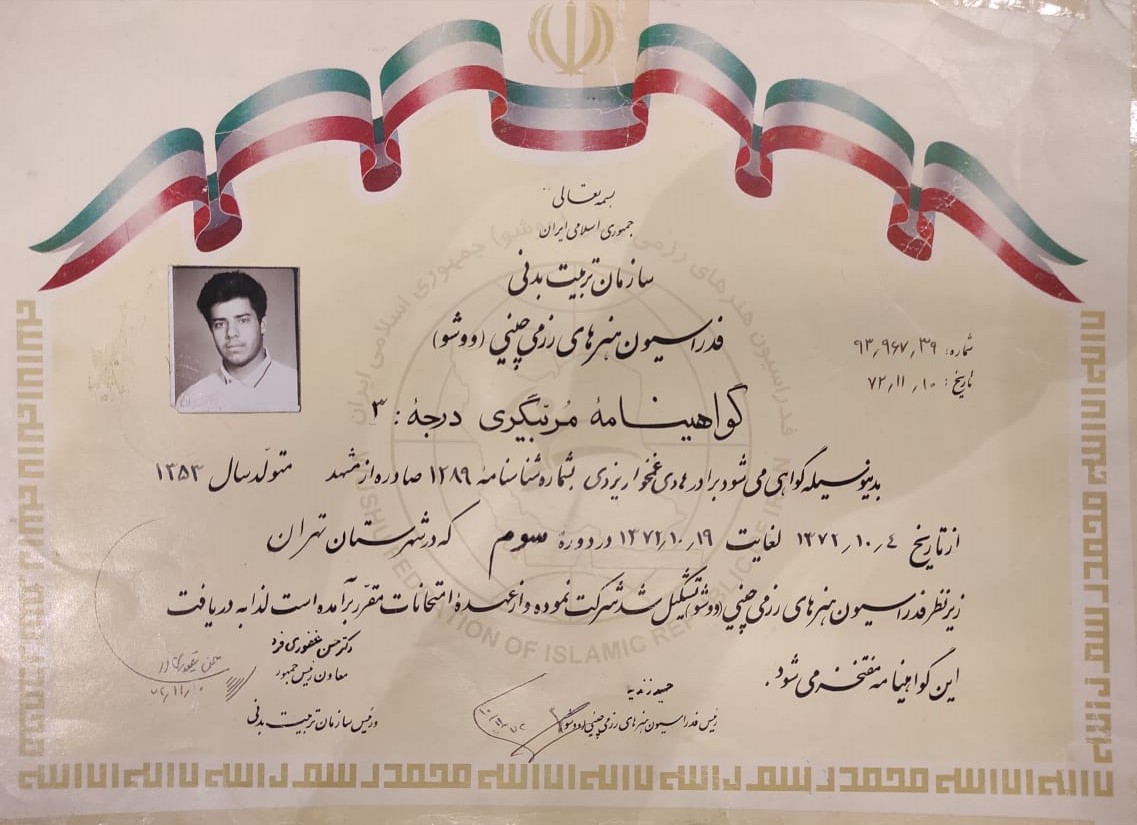 بسمه تعالی
جمهوری اسلامی ایران
سازمان تربیت بدنی
فدراسیون هنرهای رزمی چینی (ووشو)
شماره: ۹۳٫۹۶۷٫۳۹
تاریخ: ۷۲٫۱۱٫۱۰
گواهینامهٔ مربیگری درجهٔ: ۳
بدینوسیله گواهی می شود برادر هادی غمخوار یزدی بشماره شناسنامهٔ ۱۲۸۹ صادره از مشهد متولد سال ۱۳۵۳
از تاریخ ۱۳۷۲٫۱۰٫۴ لغایت ۱۳۷۲٫۱۰٫۱۹ در دورهٔ سوم که در شهرستان تهران
زیر نظر فدراسیون هنرهای رزمی چینی (ووشو) تشکیل شد شرکت نموده و از عهدهٔ امتحانات مقرر برآمده است لذا به دریافت
این گواهینامه مفتخر می شود.
حمید زندیه
رئیس فدراسیون هنرهای رزمی چینی (ووشو)
دکتر حسن غفوری فرد
معاون رئیس جمهور
و رئیس سازمان تربیت بدنی
فدراسیون هنرهای رزمی (ووشو) جمهوری اسلامی ایران
WUSHU FEDERATION OF ISLAMIC REPUBLIC OF IRAN